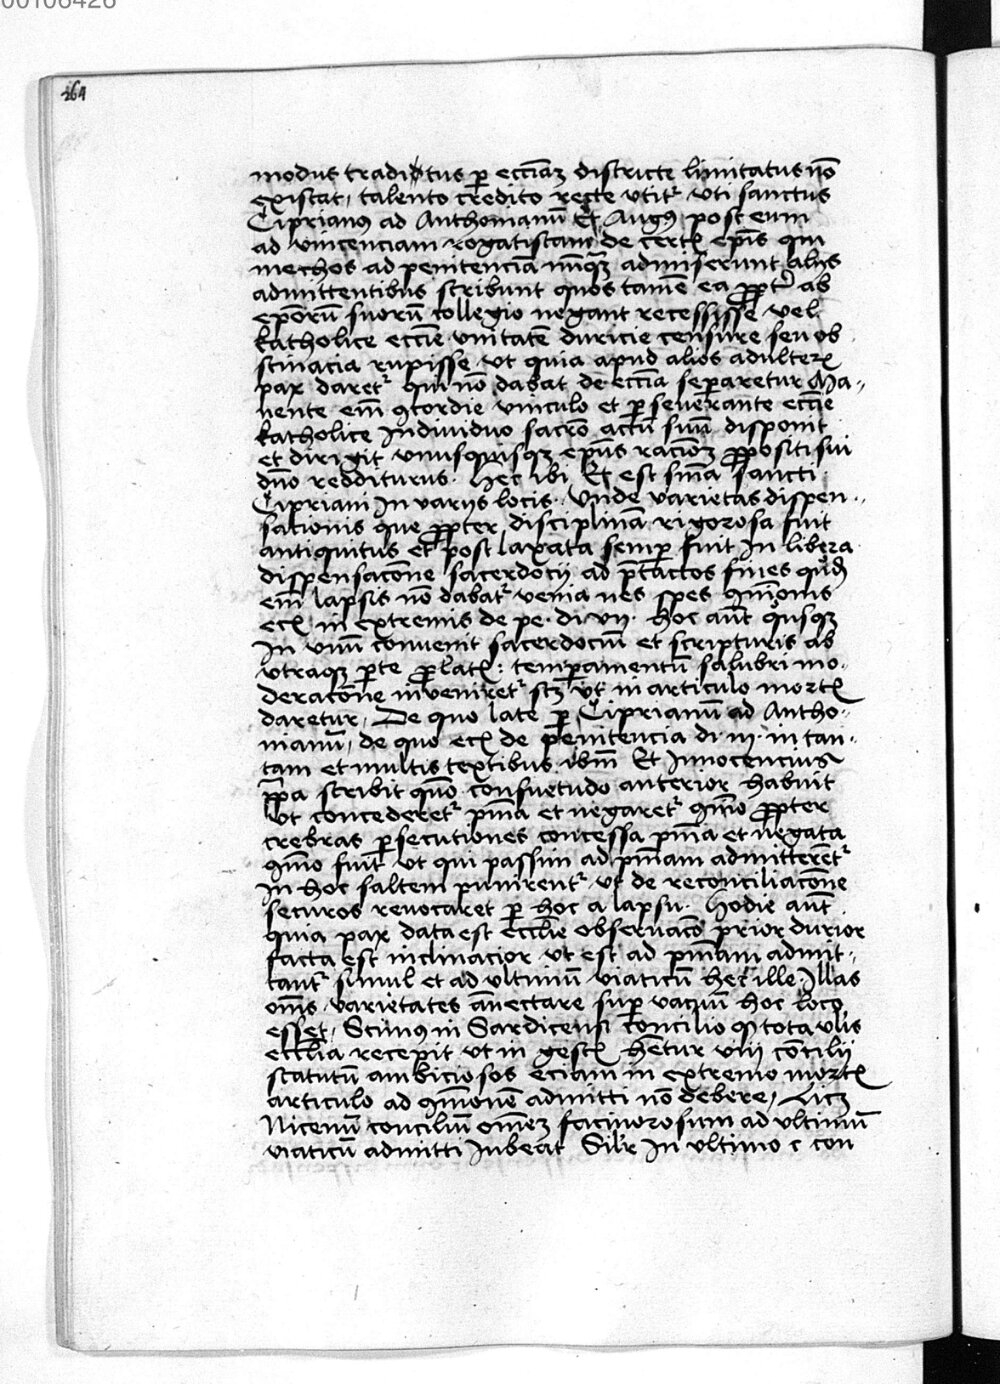 00106426
264
modus traditus p eccıaʒ districte limitatus nō
existat, talento credito recte vtit᷑ vti sanctus
Ciprianꝰ ad Anthonianū Et Augꝰ post eum
ad vincenciam rogatistam de certꝭ ep̄is qui
mechos ad penitenciā nūqʒ admiserunt alijs
admittentibus scribunt quos tamē ea ꝓpt᷑ ab
ep̄orū suorū collegio negant recessisse vel
katholice eccīe vnitatē duricie censure seu ob
stinacia rupisse vt quia apud alios adulterꝭ
pax daret᷑ qui nō dabat de eccīa separetur Ma-
nente em̄ ꝯcordie vinculo et ꝑseuerante eccīe
katholice Indiuiduo sacrō actū suū disponit
et dirigit vnusquisqʒ ep̄us racionē ꝓpositi sui
dn̄o redditurus. Hec ibi Et est sn̄ia sancti
Cipriani In varijs locis. Vnde varietas dispen-
sationis que ꝓpter disciplinā rigorosa fuit
antiquitus et post laxata semꝑ fuit In libera
dispensacōne sacerdocij ad p̄tactos fines
em̄ lapsis nō dabat᷑ venia nes spes ꝯmōnis
ecꝭ in extremis de pe. di vij. hoc aūt qusqʒ
In vnū conuenit sacerdociū et scripturis ab
vtraqʒ ꝑte ꝓlatꝭ: temꝑamentū salubri mo-
deracōne inveniret᷑ scʒ vt in articulo mortꝭ
daretur, De quo late ꝑ Ciprianū ad Antho-
nianū, de quo ecꝭ de penitencia di iij in tan-
tam et multis textibus ibm̄ Et Innocencius
ppa scribit quō consuetudo anterior habuit
vt concederet᷑ pn̄ia et negaret᷑ ꝯmō ꝓpter
crebras ꝑsecutiones concessa pn̄ia et negata
ꝯmō fuit vt qui passim ad pn̄iam admitterēt᷑
In hoc saltem punirent᷑ vt de reconciliacōne
securos reuocaret ꝑ hoc a lapsu. Hodie aūt
quia pax data est ecclīe obseruacō prior durior
facta est inclinacior vt est ad pn̄iam admit-
tant᷑ simul et ad vltimū viaticū hec ille. Illas
om̄s varietates ānectare suꝑ vacuū hoc loco
esset, Scimꝰ in Sardicensi concilio qꝫ tota vl̄is
ecclīa recepit vt in gestꝭ hētur viij cōcilij
statutū ambiciosos eciam in extremo mortꝭ
articulo ad ꝯmōnē admitti nō debere, Licʒ
Nicenū conciliū omēʒ facinorosum ad vltimū
viaticū admitti Iubeat Sil̄r In vltimo c con